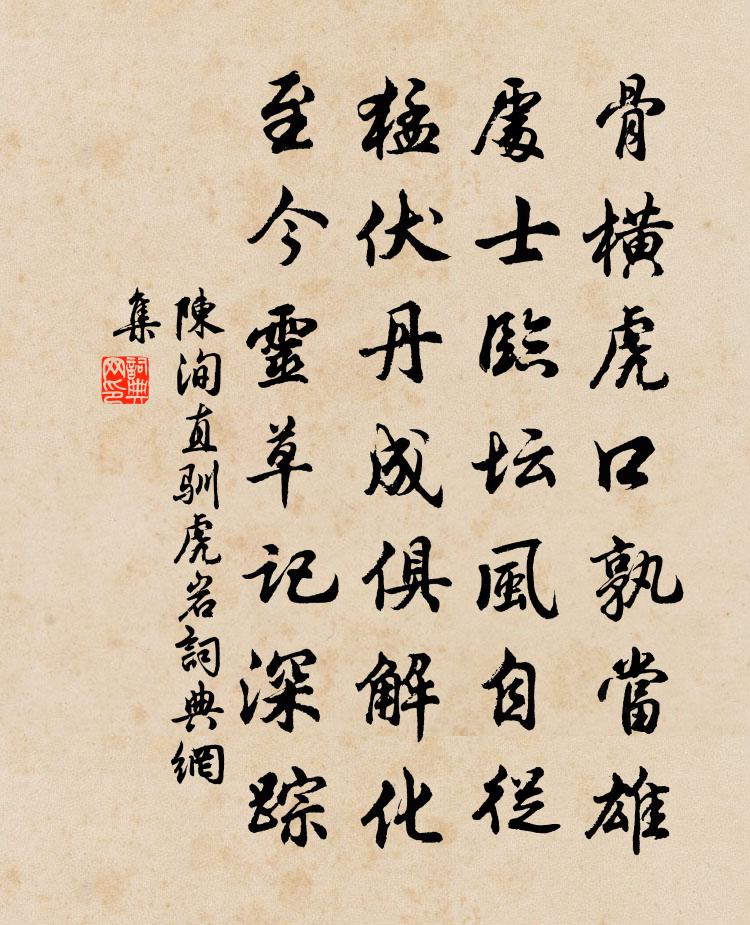 骨橫虎口孰當雄
處士臨坛風自從
猛伏丹成俱解化
至今靈草記深踪
陳洵直馴虎岩詞典網
集
詞典
网印